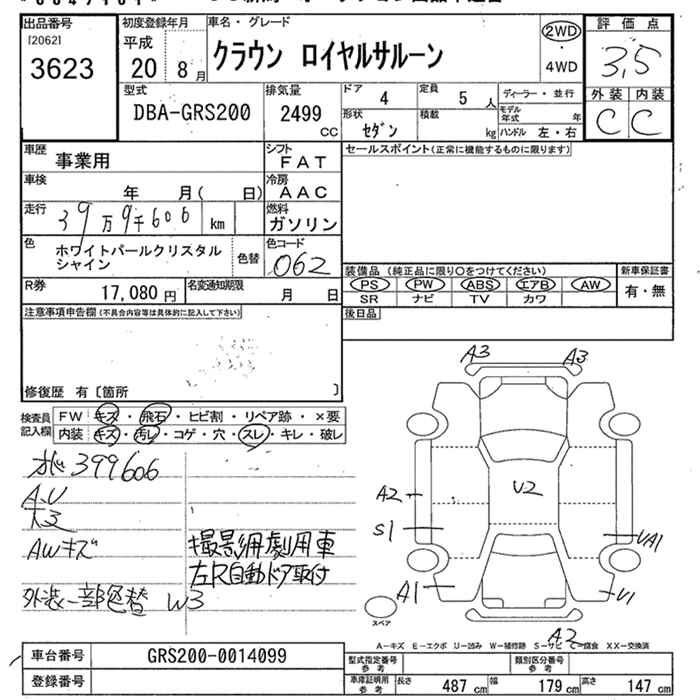 出品番号
[2062]
3623
初度登録年月
平成
20 8月
車名・グレード
クラウン ロイヤルサルーン
2WD
4WD
評価点
3,5
外装 内装
C C
型式
DBA-GRS200
排気量
2499
CC
ドア 4
定員 5人
ディーラー・並行
モデル年式 年
形状 セダン
積載 kg
ハンドル 左・右
車歴
事業用
シフト
FAT
セールスポイント(正常に機能するものに限ります)
車検
年 月( 日)
冷房
AAC
走行
39万9千606 km
燃料
ガソリン
色
ホワイトパールクリスタル
シャイン
色替
色コード
062
装備品 (純正品に限り○をつけてください)
PS PW ABS エアB AW
SR ナビ TV カワ
新車保証書
有・無
R券
17,080円
名変通知期限
月 日
後日品
注意事項申告欄(不具合内容等は具体的に記入して下さい)
修復歴 有〔箇所 〕
検査員
記入欄
FW キズ・飛石・ヒビ割・リペア跡・×要
内装 キズ・汚レ・コゲ・穴・スレ・キレ・破レ
399606
A,U
AWキズ
外装一部色替 W3
撮影用劇用車
左R自動ドア取付
A3 A3
A2
U2
S1
A1
UA1
U1
A2
スペア
A—キズ E—エクボ U—凹み W—補修跡 S—サビ C—腐食 XX—交換済
車台番号
GRS200-0014099
登録番号
型式指定番号
参考
類別区分番号
参考
車庫証明用
参考
長さ 487cm 幅 179cm 高さ 147cm